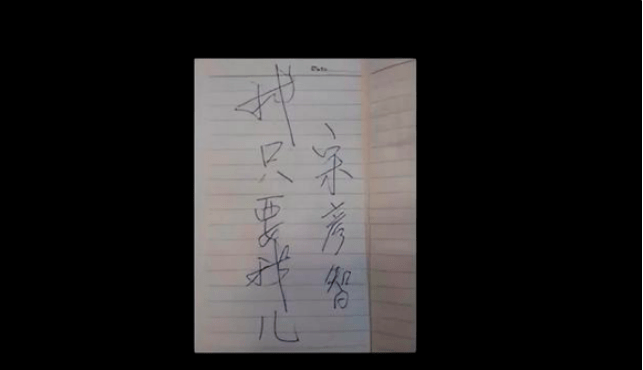 宋彦智
我只要我儿